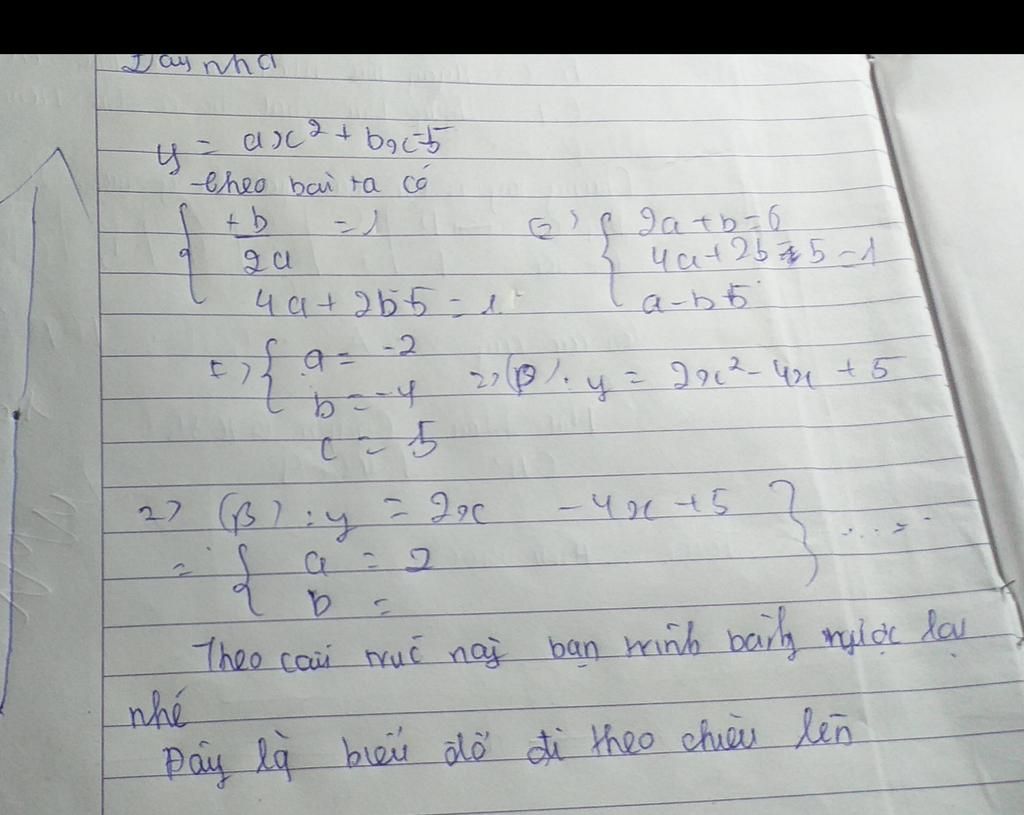 Đây nha
y = ax² + bx-5
theo bài ra có
{ +b/2a = 1 <=> { 2a+b=6
4a+2b+5=1
4a+2b-5=1 a-b+5
<=> { a = -2
b = -4 => (P): y = 2x² - 4x + 5
c = 5
=> (P): y = 2x - 4x + 5 } ...
= { a = 2
b =
Theo cấu trúc này bạn trình bày ngược lại
nhé
Đây là biểu đồ đi theo chiều lên